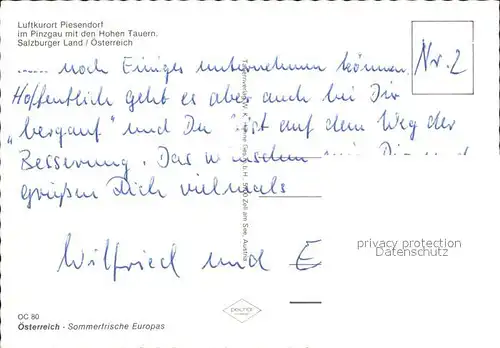 Luftkurort Piesendorf
im Pinzgau mit den Hohen Tauern.
Salzburger Land / Österreich
Nr. 2
...... noch Einiges unternehmen können.
Hoffentlich geht es aber auch bei Dir
„bergauf" und Du bist auf dem Weg der
Besserung. Das wünschen wir Dir und
grüßen Dich vielmals
Wilfried und E
privacy protection
Datenschutz
OC 80
Österreich - Sommerfrische Europas
Zell am See, Austria